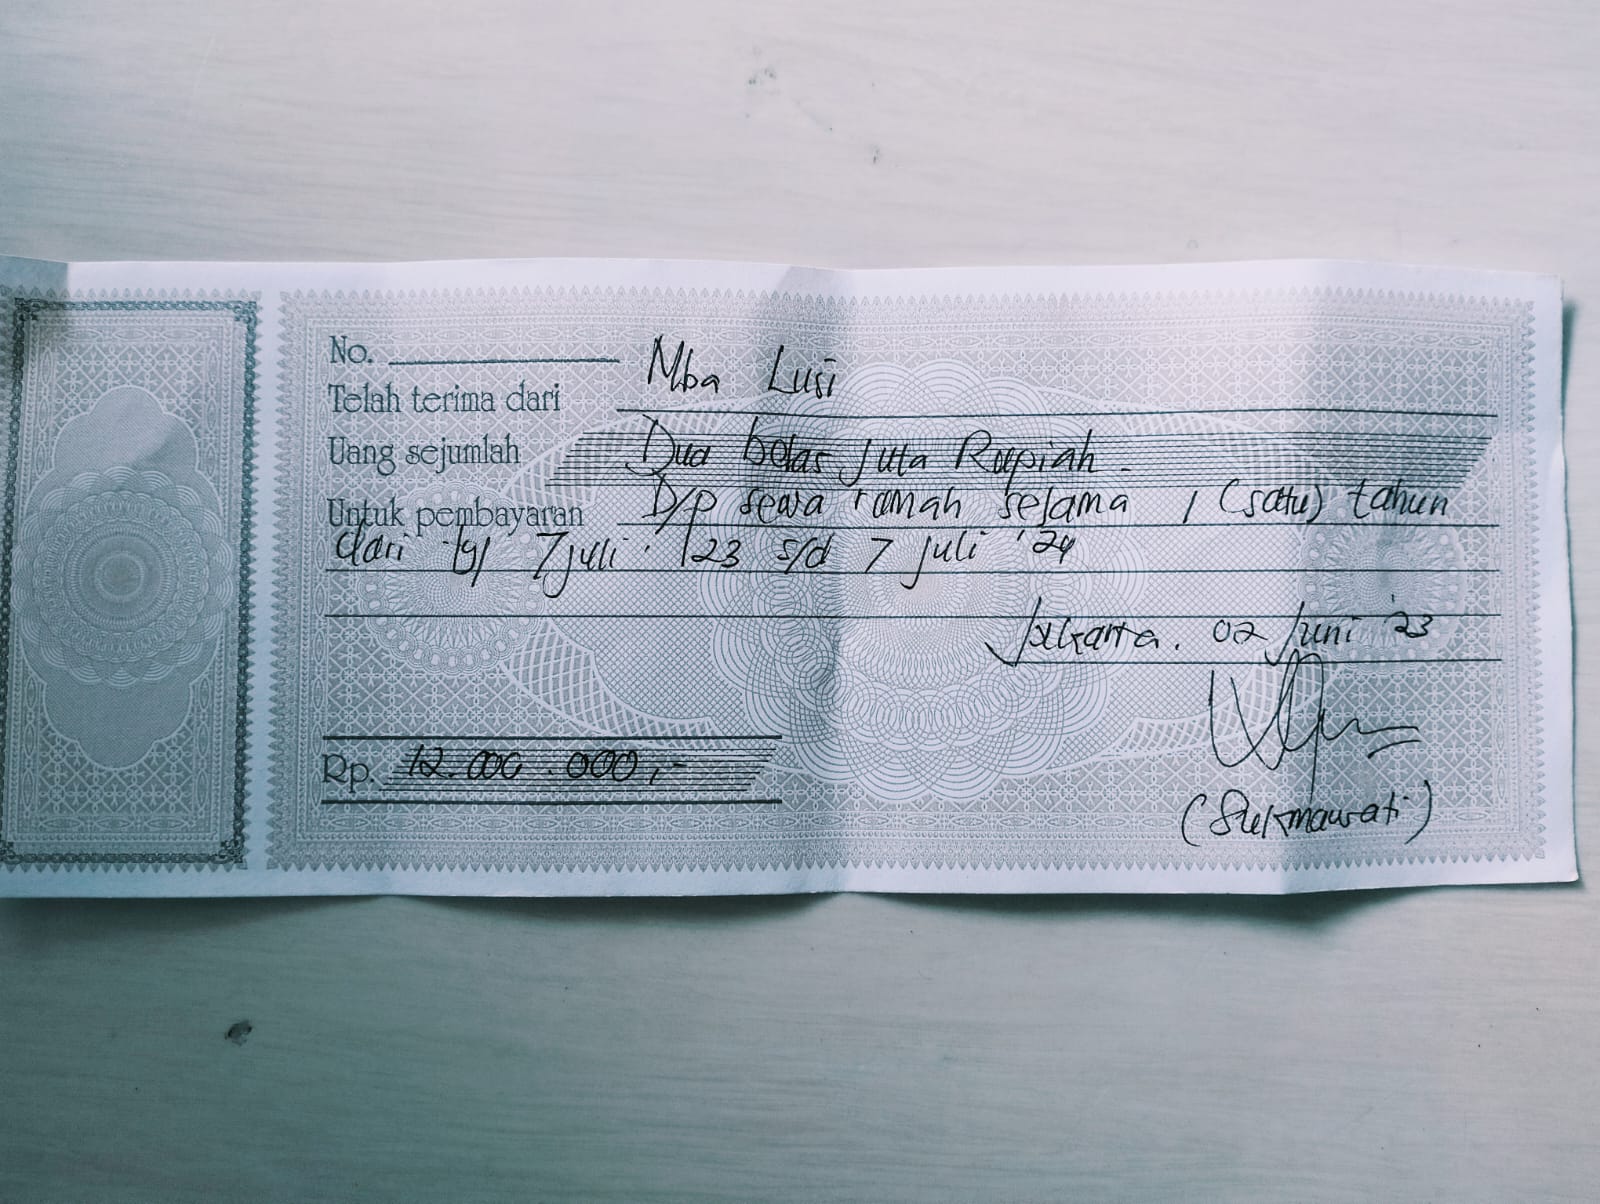 No.
Telah terima dari Mba Lusi
Uang sejumlah Dua belas juta Rupiah -
Untuk pembayaran D/p sewa rumah selama 1 (satu) tahun
dari tgl 7 juli '23 s/d 7 juli '24
Jakarta. 02 Juni '23
Rp. 12.000.000,-
(Sukmawati)